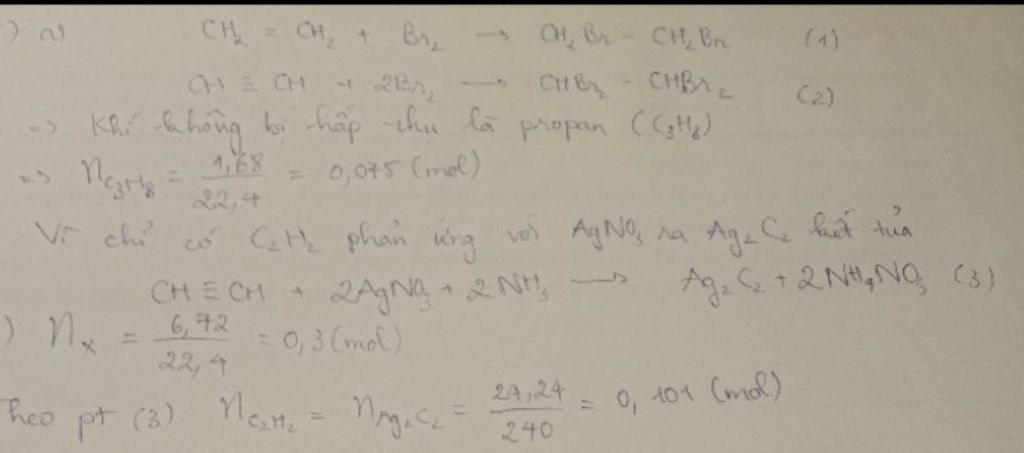 ) a) CH₂ = CH₂ + Br₂ → CH₂Br - CH₂Br (1)
CH ≡ CH + 2Br₂ → CHBr₂ - CHBr₂ (2)
=> Khí không bị hấp thụ là propan (C₃H₈)
=> n C₃H₈ = 1,68 / 22,4 = 0,075 (mol)
Vì chỉ có C₂H₂ phản ứng với AgNO₃ ra Ag₂C₂ kết tủa
CH ≡ CH + 2AgNO₃ + 2NH₃ → Ag₂C₂ + 2NH₄NO₃ (3)
) nₓ = 6,72 / 22,4 = 0,3 (mol)
Theo pt (3) n C₂H₂ = n Ag₂C₂ = 24,24 / 240 = 0,101 (mol)